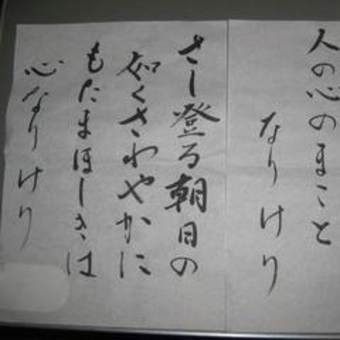 人の心のまこと
なりけり
さし登る朝日の
如くさわやかに
もたまほしきは
心なりけり